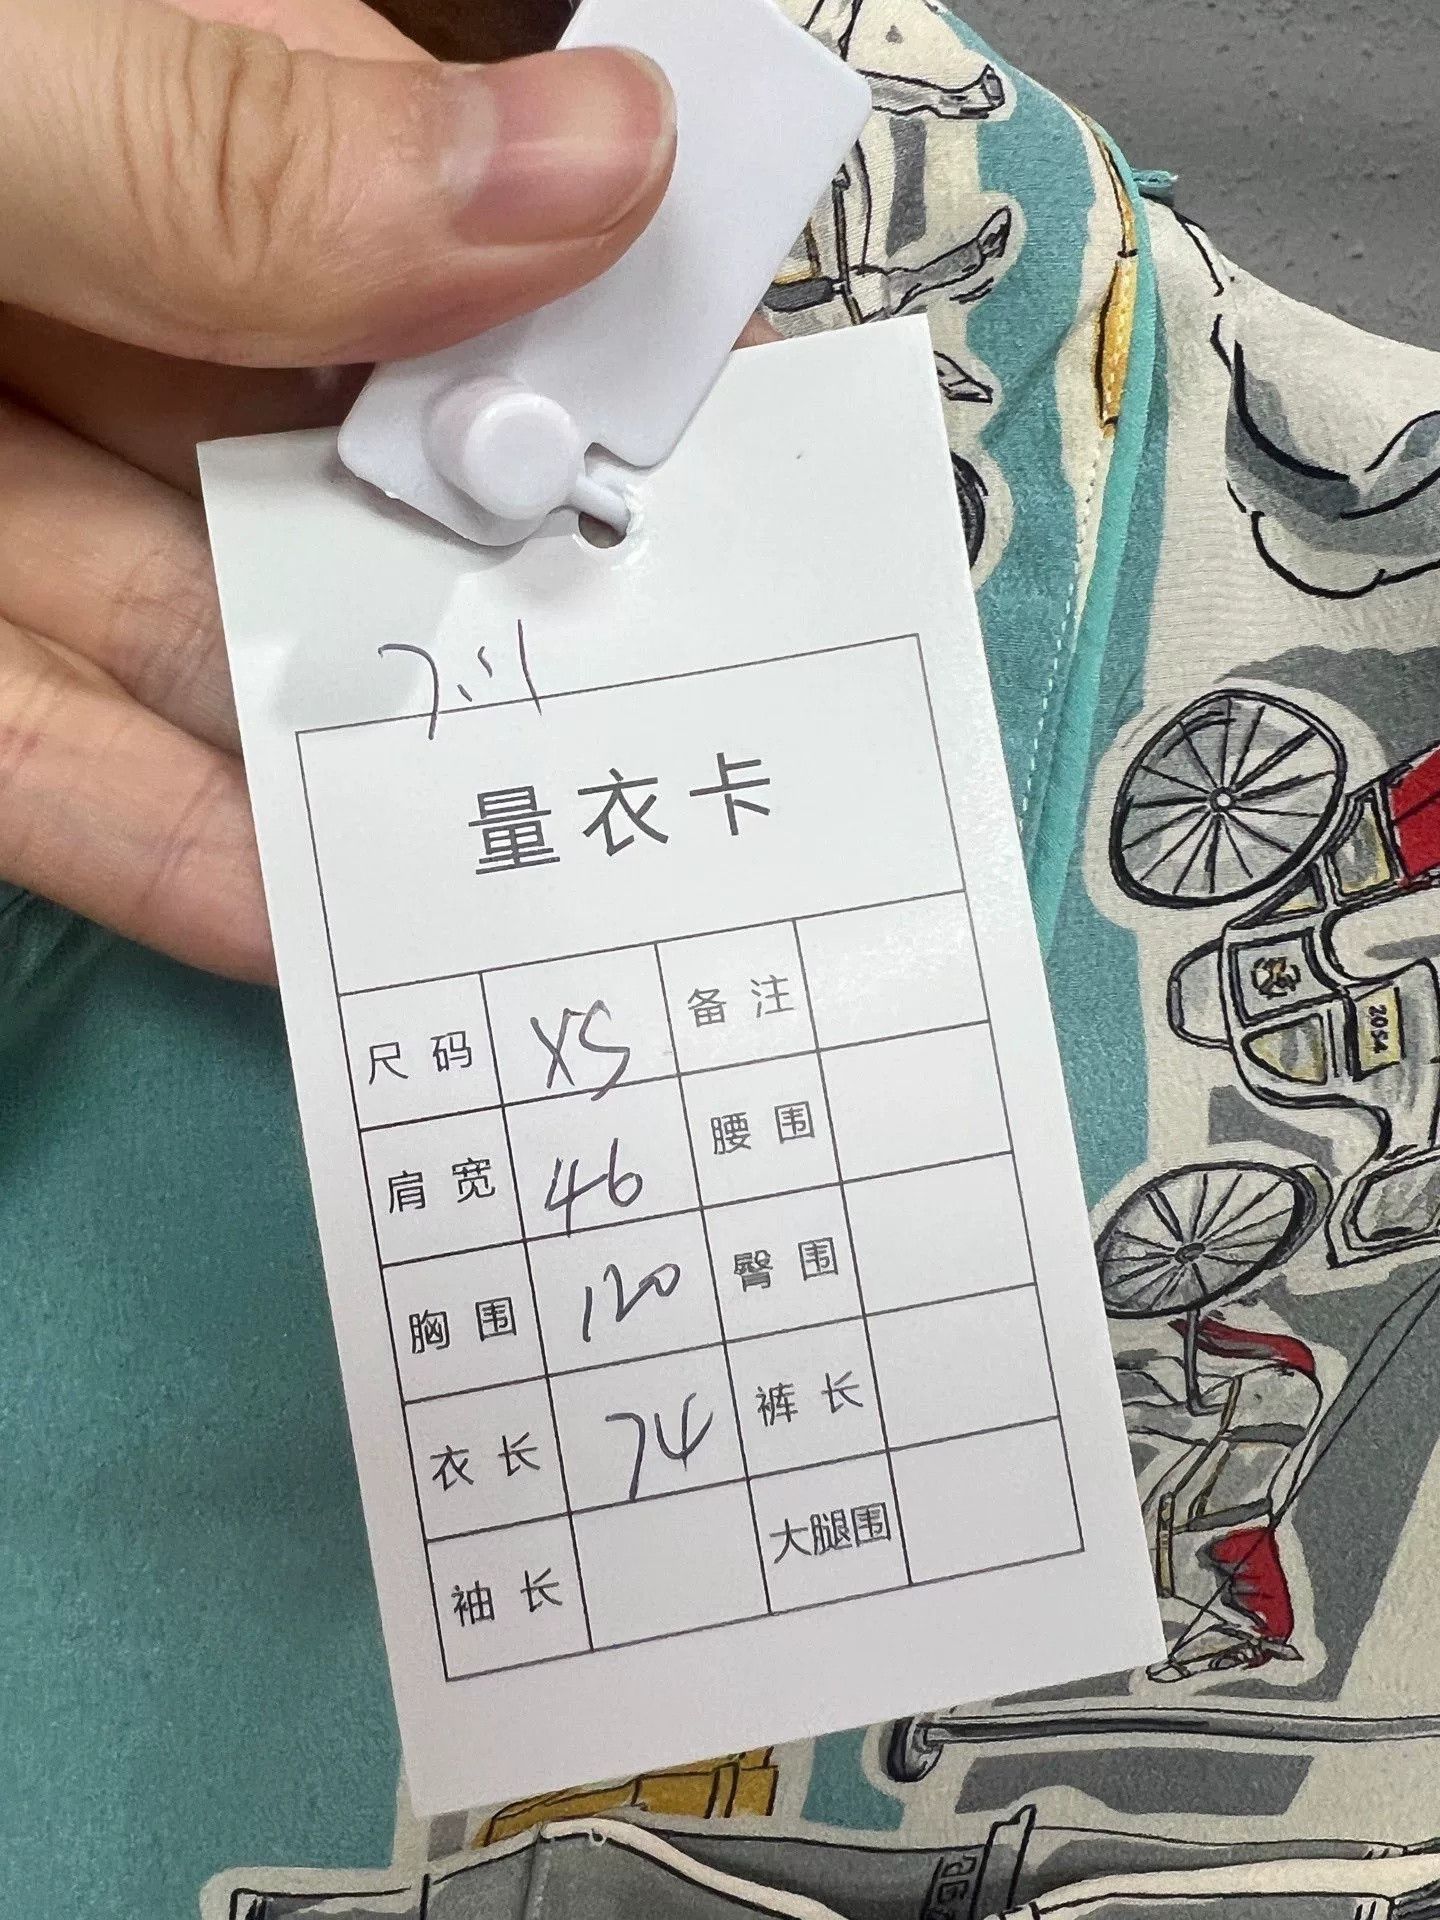 7.21
量衣卡
尺码 XS 备注
肩宽 46 腰围
胸围 120 臀围
衣长 74 裤长
袖长 大腿围
2054